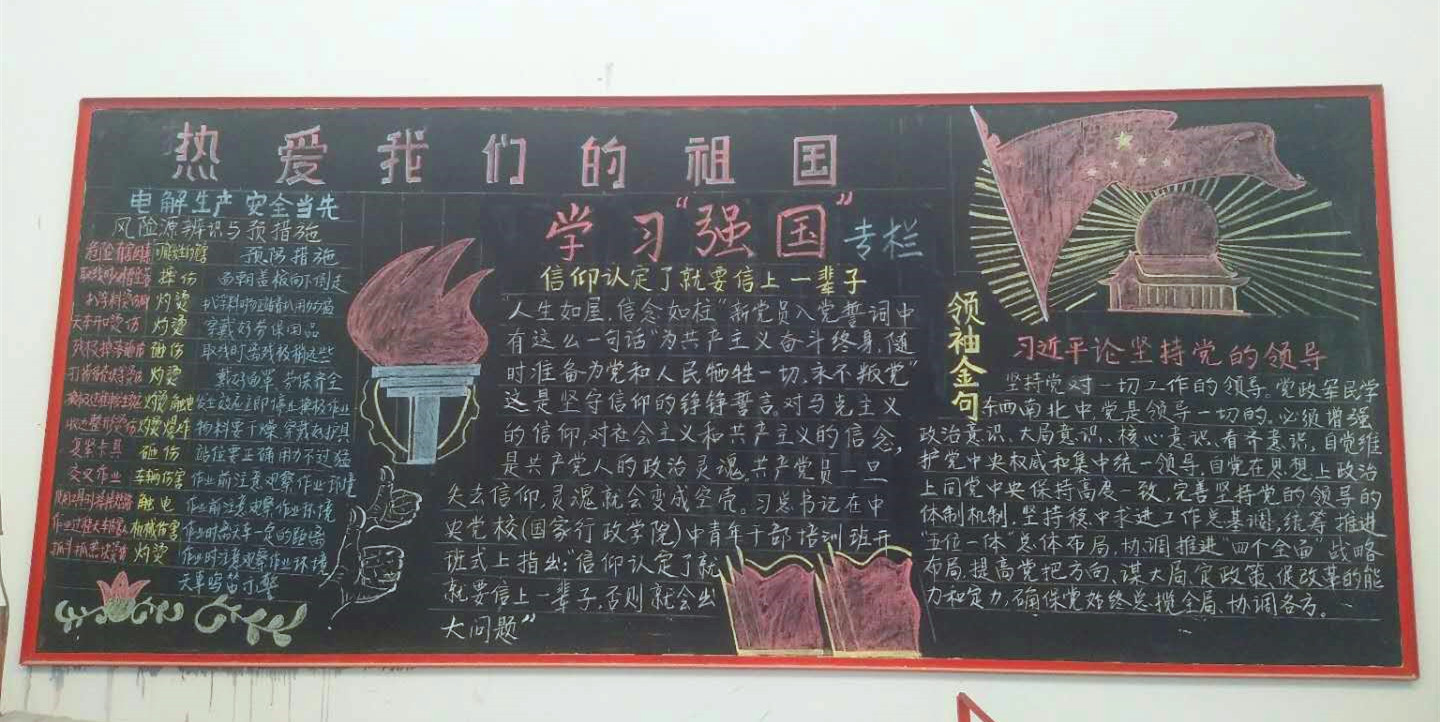 热爱我们的祖国
电解生产安全当先
风险源辨识与预措施
预防措施
灼烫
穿戴好劳保用品
砸伤
灼烫
戴好面罩,劳保齐全
物料要干燥
复紧卡具 砸伤 站位要正确用力不过猛
交叉作业 车辆伤害 作业前注意观察作业环境
触电 作业前注意观察作业环境
机械伤害
灼烫 作业时注意观察作业环境
天车鸣笛示警
学习“强国”专栏
信仰认定了就要信上一辈子
“人生如屋,信念如柱”新党员入党誓词中
有这么一句话“为共产主义奋斗终身,随
时准备为党和人民牺牲一切,永不叛党”
这是坚守信仰的铮铮誓言。对马克主义
的信仰,对社会主义和共产主义的信念,
是共产党人的政治灵魂。共产党员一旦
失去信仰,灵魂就会变成空壳。习总书记在中
央党校(国家行政学院)中青年干部培训班开
班式上指出:“信仰认定了就
就要信上一辈子,否则就会出
大问题”
领袖金句
习近平论坚持党的领导
坚持党对一切工作的领导。党政军民学
东西南北中党是领导一切的。必须增强
政治意识、大局意识、核心意识、看齐意识,自觉维
护党中央权威和集中统一领导,自觉在思想上政治
上同党中央保持高度一致,完善坚持党的领导的
体制机制,坚持稳中求进工作总基调,统筹推进
“五位一体”总体布局,协调推进“四个全面”战略
布局,提高党把方向、谋大局、定政策、促改革的能
力和定力,确保党始终总揽全局、协调各方。